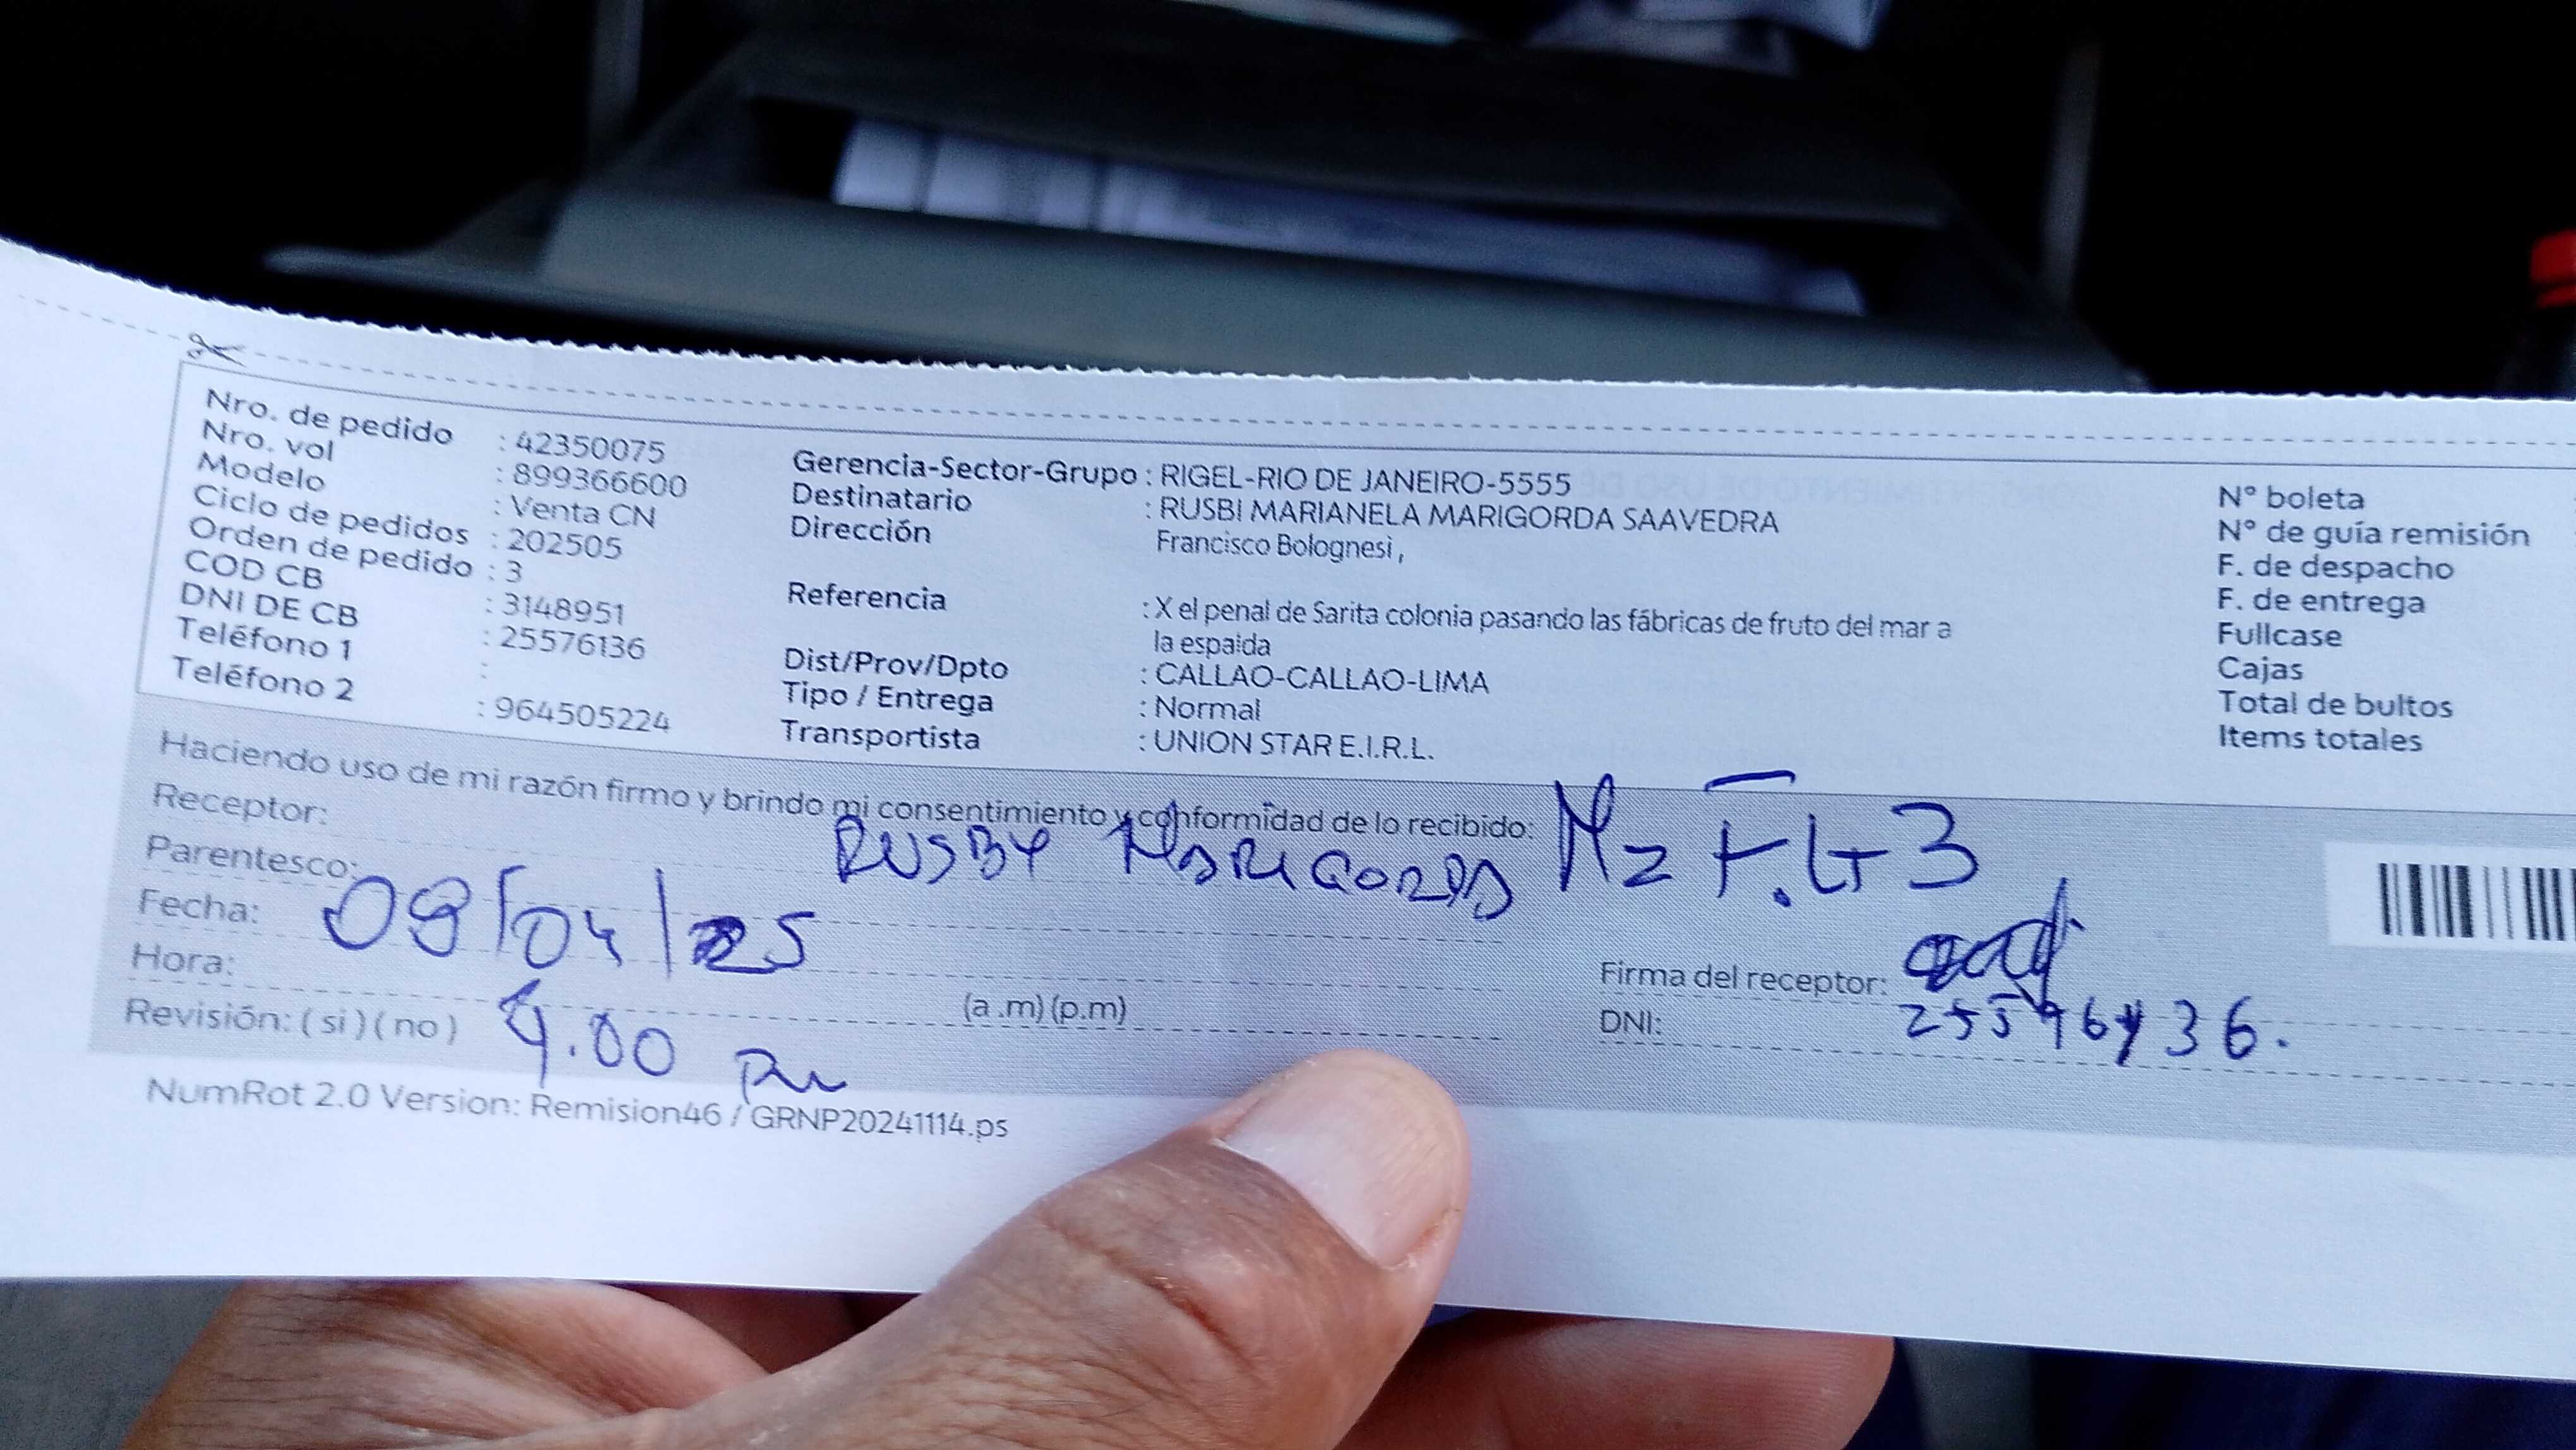 Nro. de pedido : 42350075
Nro. vol : 899366600
Modelo : Venta CN
Ciclo de pedidos : 202505
Orden de pedido : 3
COD CB : 3148951
DNI DE CB : 25576136
Teléfono 1 :
Teléfono 2 : 964505224
Gerencia-Sector-Grupo : RIGEL-RIO DE JANEIRO-5555
Destinatario : RUSBI MARIANELA MARIGORDA SAAVEDRA
Dirección Francisco Bolognesi,
Referencia : X el penal de Sarita colonia pasando las fábricas de fruto del mar a
la espalda
Dist/Prov/Dpto : CALLAO-CALLAO-LIMA
Tipo / Entrega : Normal
Transportista : UNION STAR E.I.R.L.
N° boleta
N° de guía remisión
F. de despacho
F. de entrega
Fullcase
Cajas
Total de bultos
Items totales
Haciendo uso de mi razón firmo y brindo mi consentimiento y conformidad de lo recibido:
Receptor: RUSBY MARIGORDA Mz F. Lt 3
Parentesco:
Fecha: 08/04/25
Hora: (a.m) (p.m)
Revisión: ( si ) ( no ) 4.00 Pm
Firma del receptor:
DNI:
NumRot 2.0 Version: Remision46 / GRNP20241114.ps